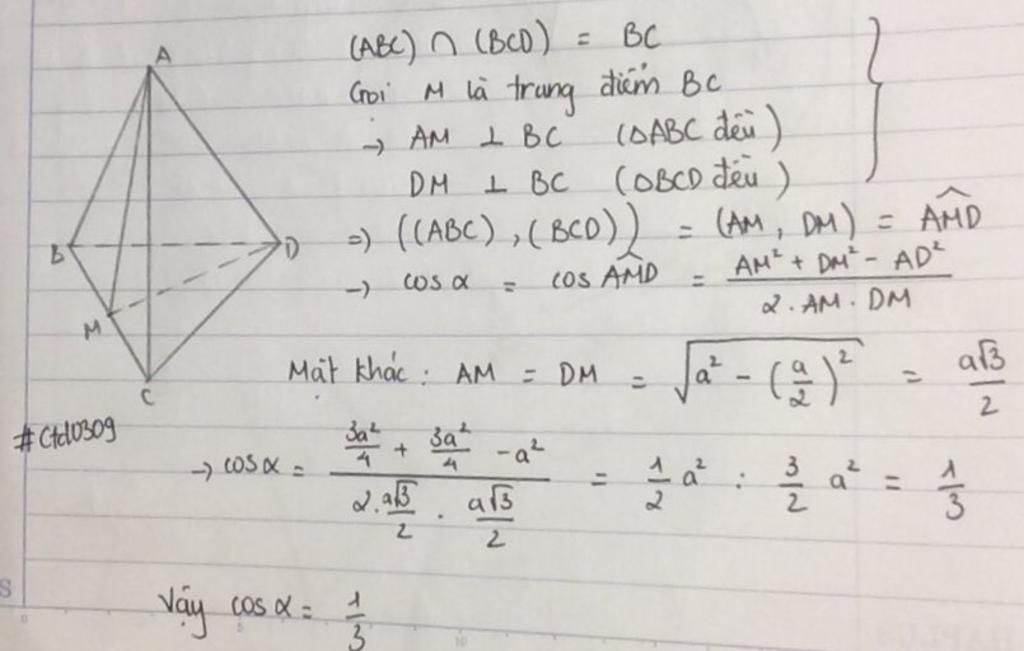 A
B
D
M
C
(ABC) ∩ (BCD) = BC
Gọi M là trung điểm BC
→ AM ⊥ BC (ΔABC đều)
DM ⊥ BC (ΔBCD đều)
⇒ ((ABC), (BCD)) = (AM, DM) = \widehat{AMD}
→ cos α = cos \widehat{AMD} = \frac{AM² + DM² - AD²}{2. AM. DM}
Mặt khác: AM = DM = \sqrt{a² - (\frac{a}{2})²} = \frac{a√3}{2}
#Ctd0309
→ cos α = \frac{\frac{3a²}{4} + \frac{3a²}{4} - a²}{2. \frac{a√3}{2} . \frac{a√3}{2}} = \frac{1}{2} a² : \frac{3}{2} a² = \frac{1}{3}
Vậy cos α = \frac{1}{3}